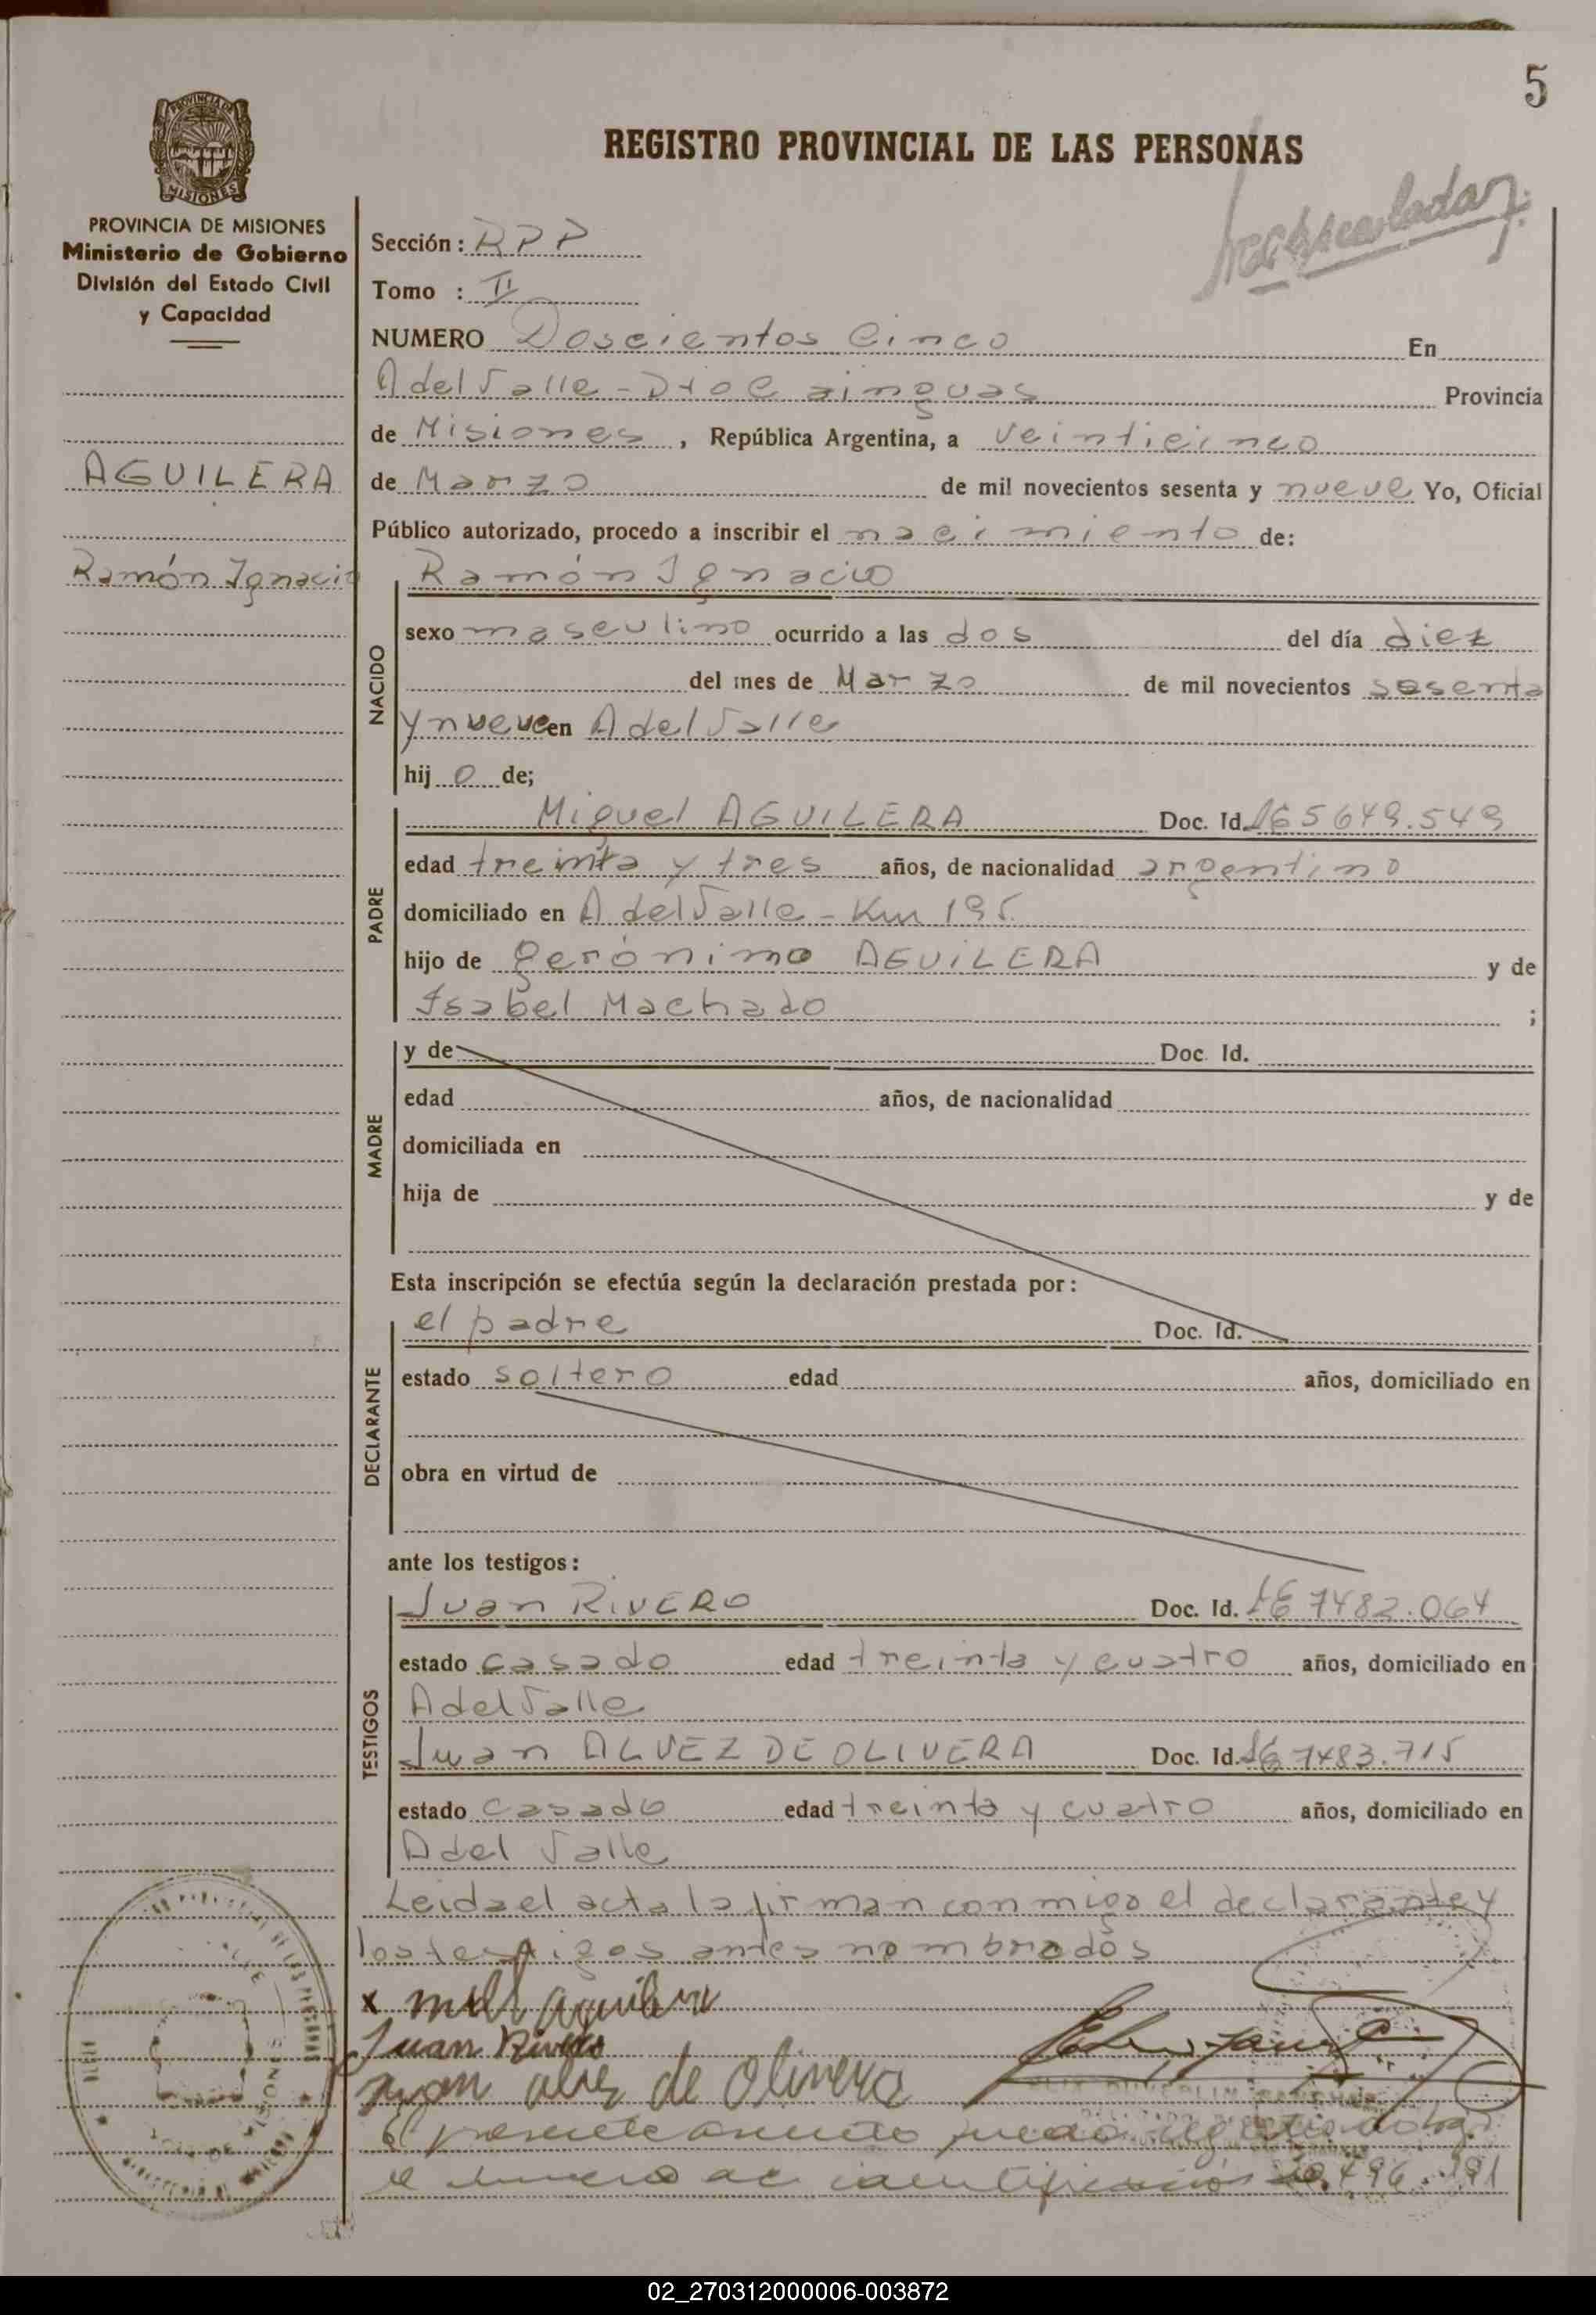 5
REGISTRO PROVINCIAL DE LAS PERSONAS
PROVINCIA DE MISIONES
Ministerio de Gobierno
División del Estado Civil
y Capacidad
AGUILERA
Ramón Ignacio
Sección: RPP
Tomo : II
NUMERO Doscientos Cinco En
A del Valle - Dto C ainguas Provincia
de Misiones, República Argentina, a veinticinco
de Marzo de mil novecientos sesenta y nueve Yo, Oficial
Público autorizado, procedo a inscribir el nacimiento de:
NACIDO
Ramón Ignacio
sexo masculino ocurrido a las dos del día diez
del mes de Marzo de mil novecientos sesenta
y nueve en A del Valle
hij o de;
PADRE
Miguel AGUILERA Doc. Id. 5649.549
edad treinta y tres años, de nacionalidad argentino
domiciliado en A del Valle - Km 195
hijo de Gerónimo AGUILERA y de
Isabel Machado ;
MADRE
y de Doc. Id.
edad años, de nacionalidad
domiciliada en
hija de y de
Esta inscripción se efectúa según la declaración prestada por:
DECLARANTE
el padre Doc. Id.
estado soltero edad años, domiciliado en
obra en virtud de
ante los testigos:
TESTIGOS
Juan RIVERO Doc. Id. 7482.064
estado casado edad treinta y cuatro años, domiciliado en
A del Valle
Juan ALVEZ DE OLIVERA Doc. Id. 7483.715
estado casado edad treinta y cuatro años, domiciliado en
A del Valle
Leida el acta la firman conmigo el declarante y
los testigos antes nombrados
x aguilera
Juan Rivero
Juan alvez de Olivera
El presente asiento
el numero de identificación 20.496.191
02_270312000006-003872